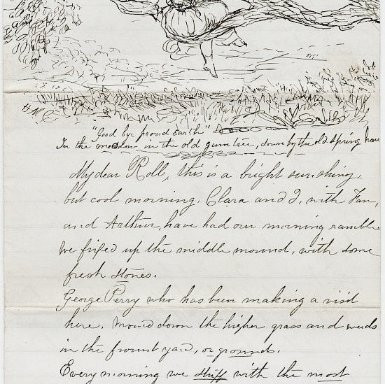 "Good bye proud earth"
In the meadow in the old gum tree, down by the old Spring house
My dear Roll, this is a bright sunshiny,
but cool morning. Clara and I, with Fan,
and Arthur, have had our morning ramble
we fixed up the middle mound, with some
fresh stones.
George Perry who has been making a visit
here, mowed down the higher grass and weeds
in the front yard, or grounds.
Every morning we stuff with the most